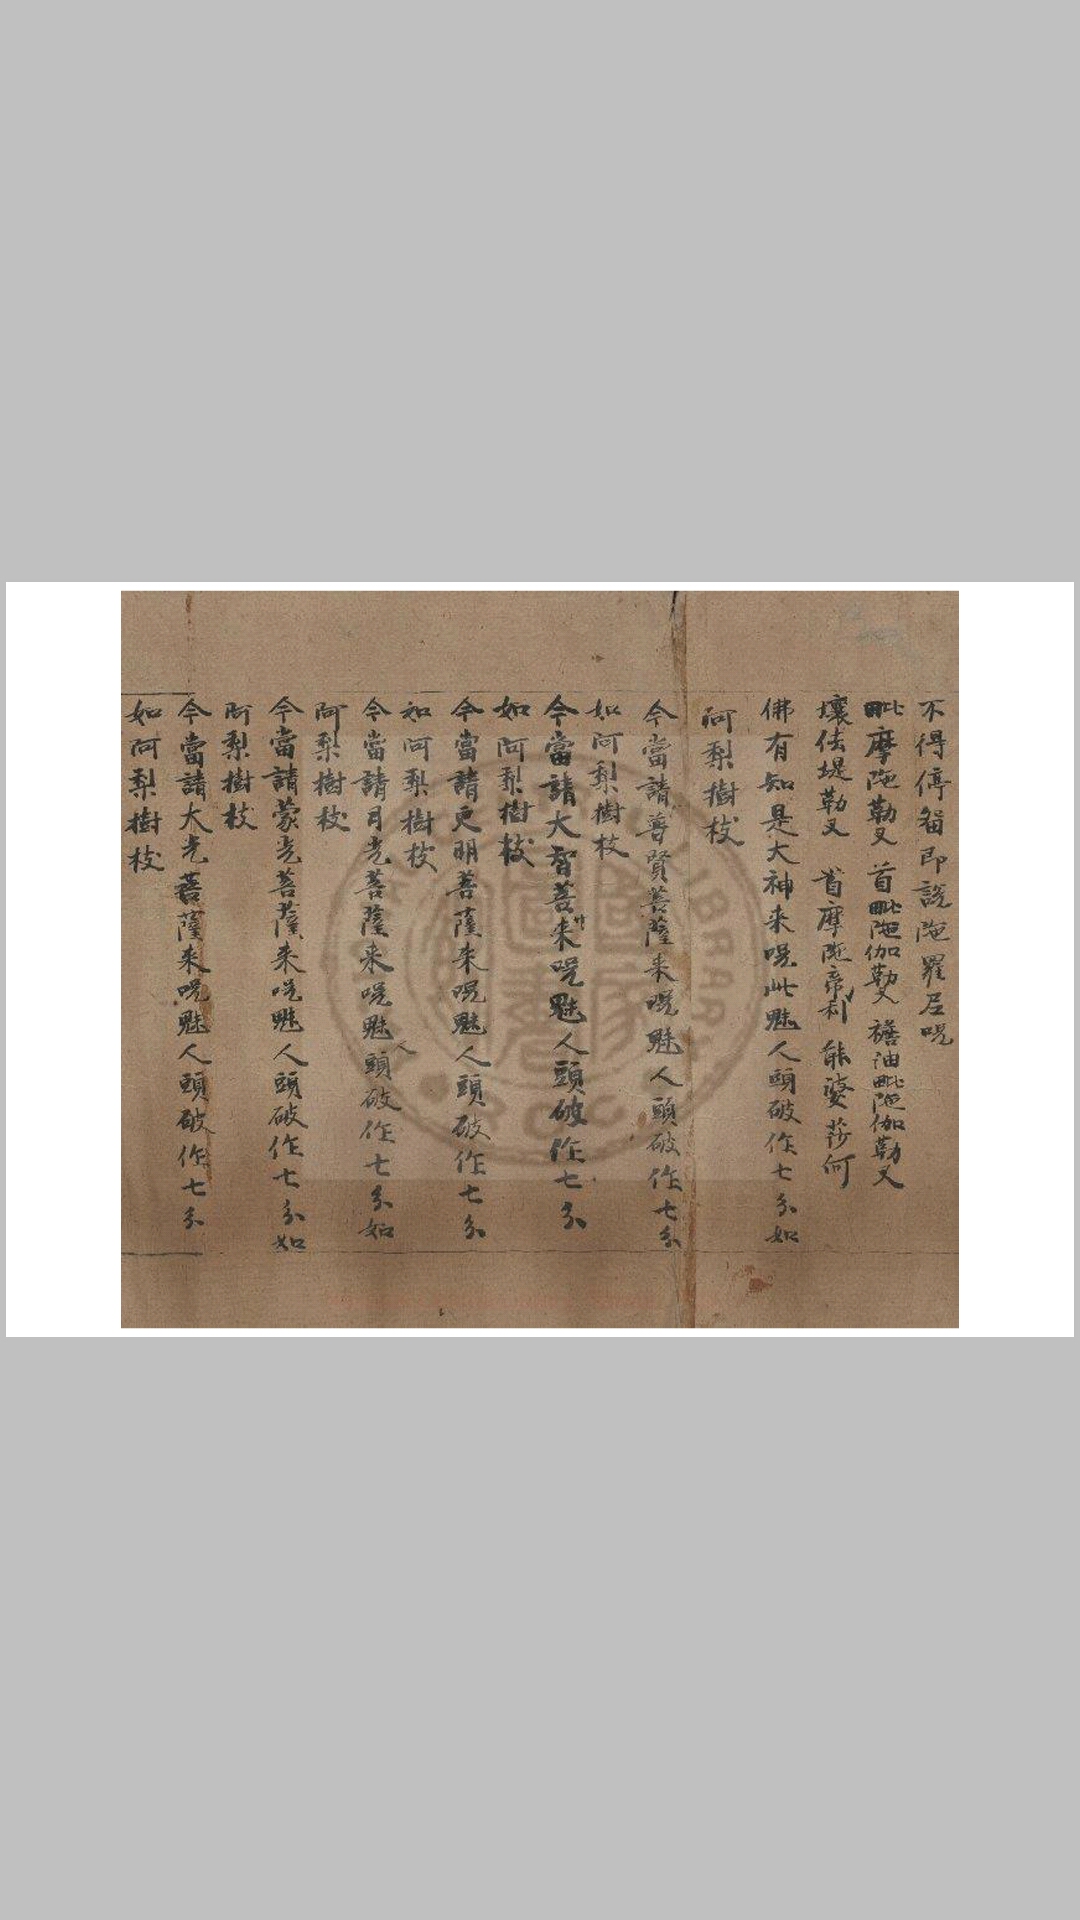 不得停留即說陁羅尼呪
毗摩陁勒叉 首毗陁伽勒叉 襜油毗陁伽勒叉
壤佉堤勒叉 首摩陁帝利 能婆莎何
佛有知是大神来呪此魅人頭破作七分如
阿梨樹枝
今當請普賢菩薩来呪魅人頭破作七分
如阿梨樹枝
今當請大智菩来呪魅人頭破作七分
如阿梨樹枝
今當請更明菩薩来呪魅人頭破作七分
如阿梨樹枝
今當請月光菩薩来呪魅人頭破作七分如
阿梨樹枝
今當請蒙光菩薩来呪魅人頭破作七分如
阿梨樹枝
今當請大光菩薩来呪魅人頭破作七分
如阿梨樹枝